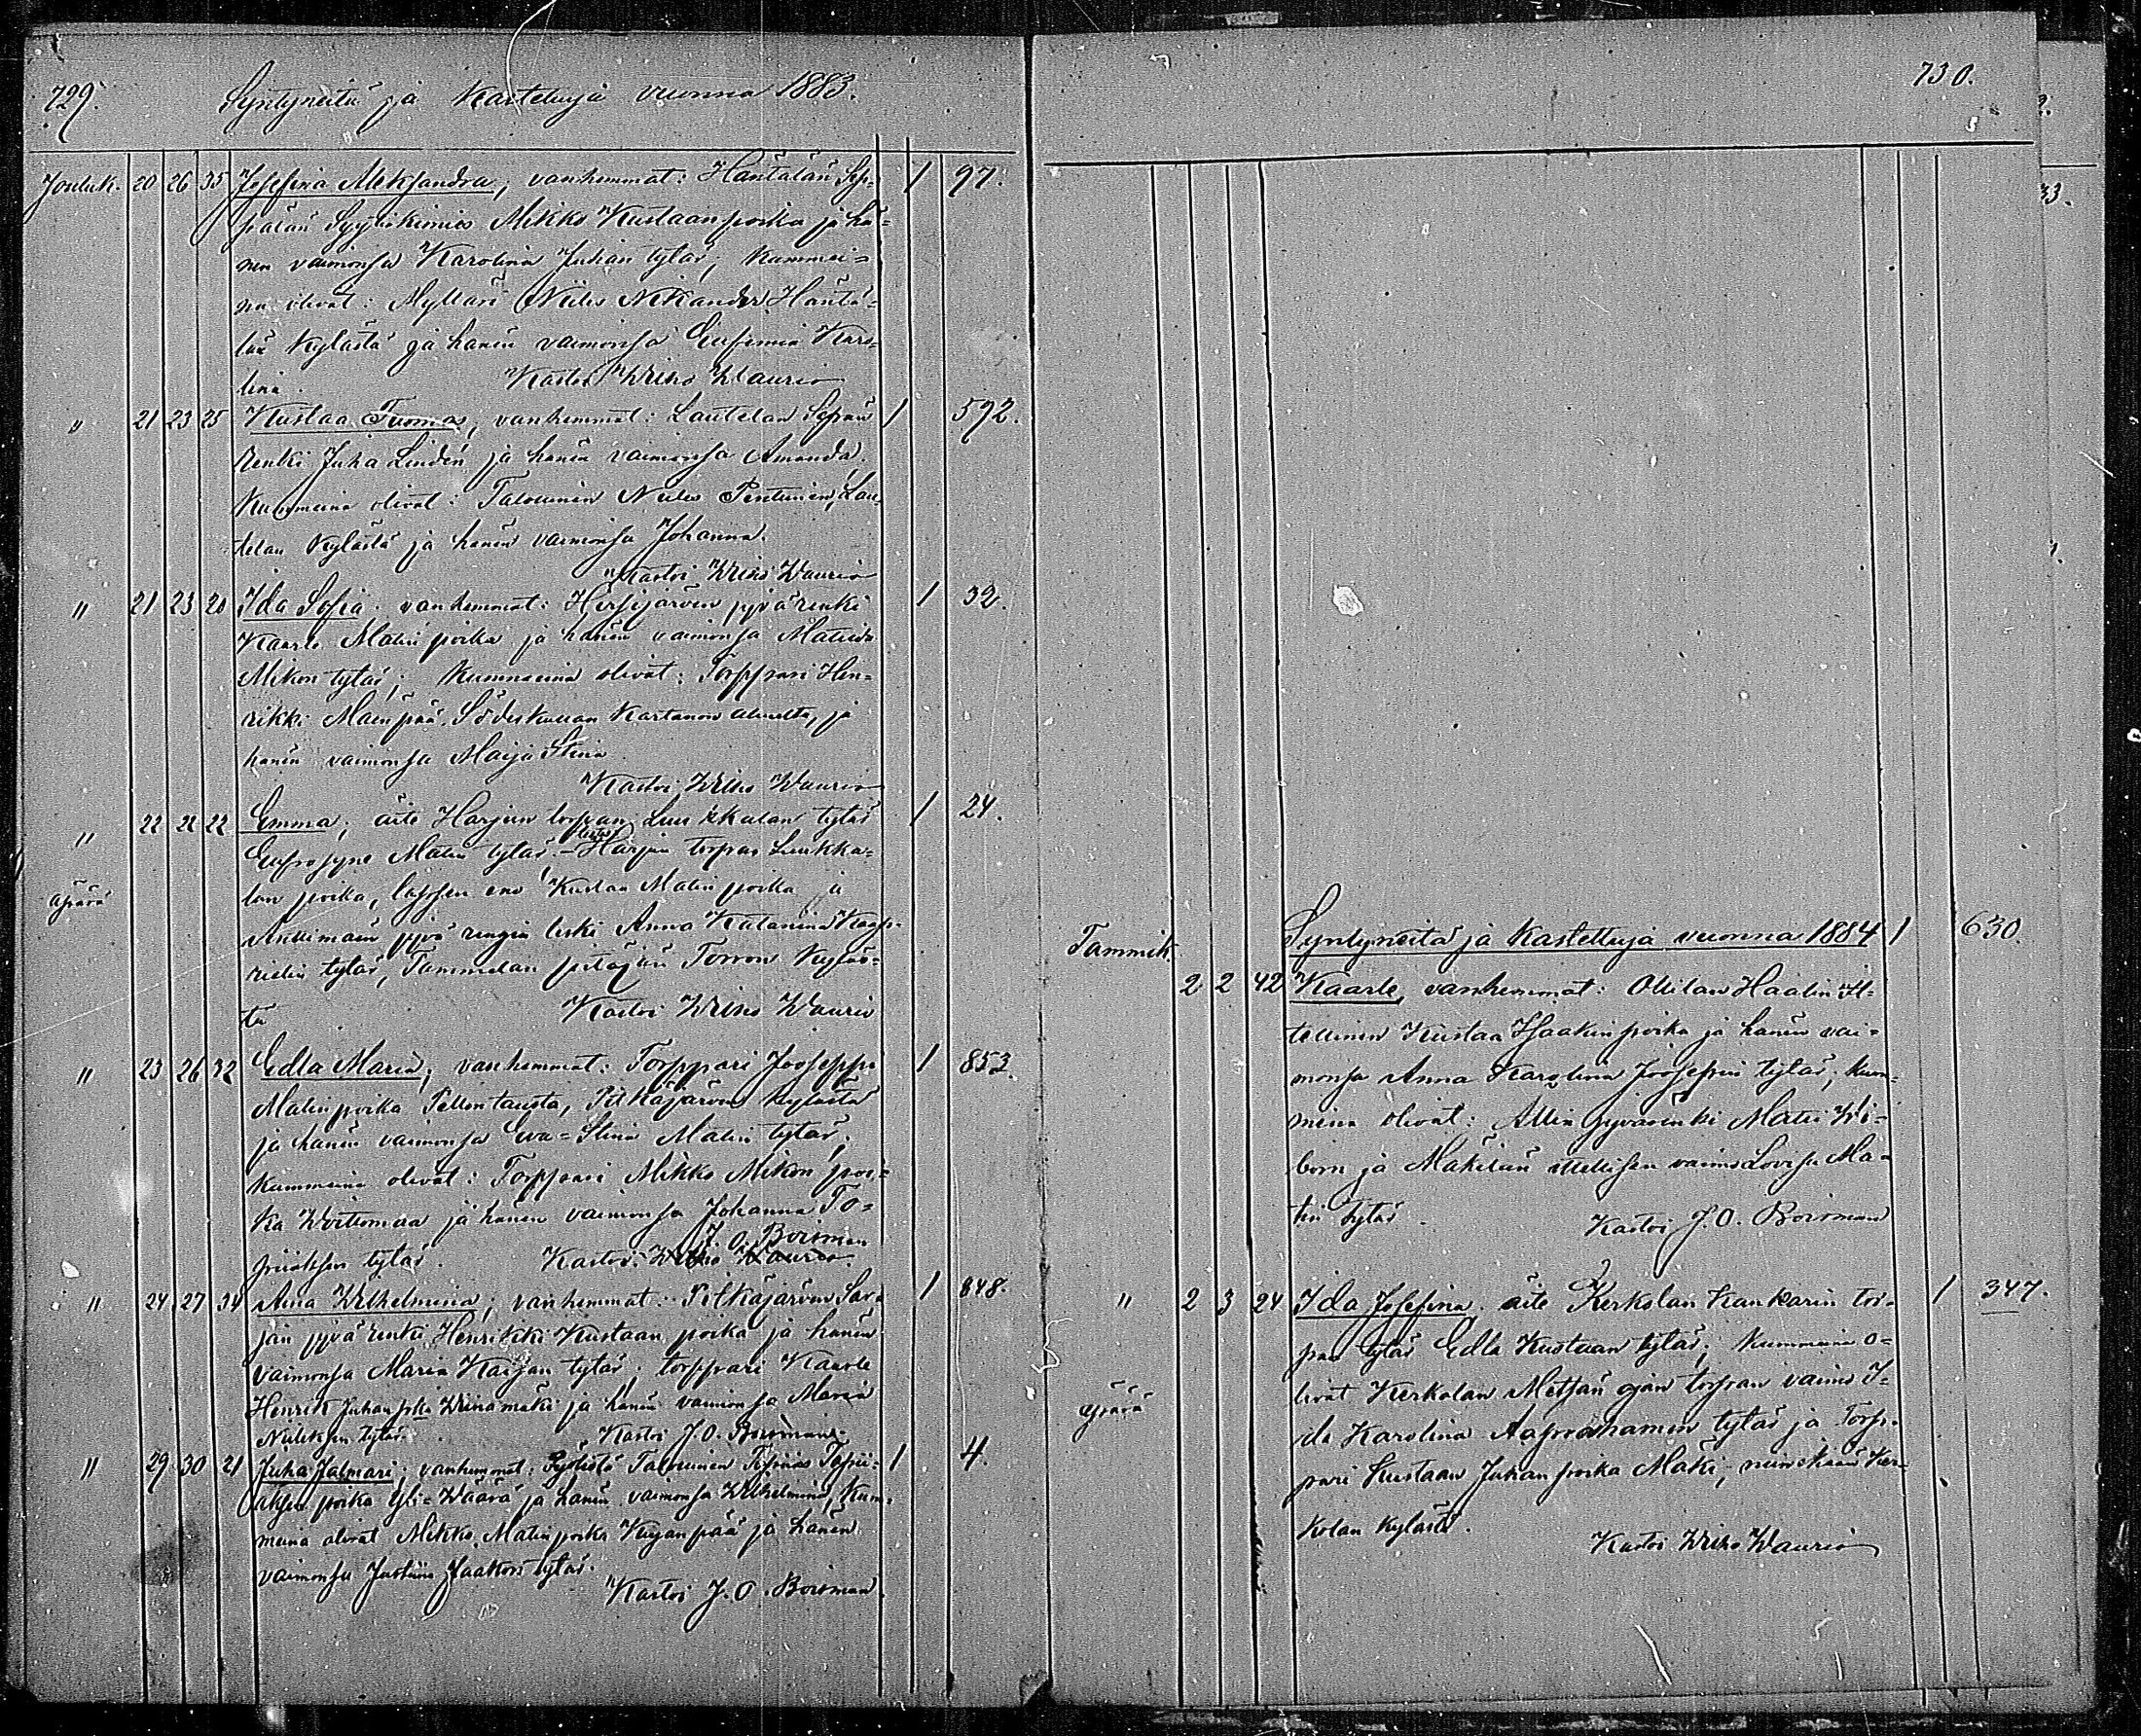 729. Syntyneitä ja Kastetuja vuonna 1883.
Jouluk. 20 26 35 Josefina Aleksandra; vanhemmat: Häntälän Sep- 1 97.
pälän Syytinkimies Mikko Kustaan poika ja hä-
nen vaimonsa Karolina Juhan tytär; kummei-
na olivat: Mylläri Niilo Nikander Häntä-
län kylästä ja hänen vaimonsa Eufemia Karo-
lina. Kastoi Wilho Waurio
" 21 23 25 Kustaa Tuomas, vanhemmat: Lautelan Sepän 1 592.
renki Juha Lindén ja hänen vaimonsa Amanda.
Kummeina olivat: Talollinen Niilo Penttinen, Lau-
telan kylästä ja hänen vaimonsa Johanna.
Kastoi Wilho Waurio
" 21 23 20 Ida Sofia. vanhemmat: Hirsijärven jyvärenki 1 32.
Kaarle Matin poika ja hänen vaimonsa Matilda
Mikon tytär; Kummeina olivat: Torppari Hen-
rikki Mäenpää, Söderkullan Kartanon alueelta, ja
hänen vaimonsa Maija Stina.
Kastoi Wilho Waurio
" 22 22 22 Emma; äiti Harjun torpan Luukkalan tytär 1 24.
Eufrosyne Matin tytär. - Harjun torpan Luukka-
äpärä lan poika, lapsen eno Kustaa Matin poika ja
jyvä rengin leski Anna Katariina Kaap-
rielin tytär, Tammelan pitäjän Torron kyläs-
tä Kastoi Wilho Waurio
" 23 26 32 Edla Maria; vanhemmat: Torppari Jooseppi 1 853
Matin poika Pellontausta, Pitkäjärven kylästä
ja hänen vaimonsa Ewa-Stina Matin tytär;
kummeina olivat: Torppari Mikko Mikon poi-
ka Woitiomaa ja hänen vaimonsa Johanna To-
J. O. Boisman
piiaksen tytär. Kastoi Wilho Waurio.
" 24 27 34 Aina Wilhelmina; vanhemmat: Pitkäjärven Sar- 1 848.
jan jyvä renki Henrikki Kustaan poika ja hänen
vaimonsa Maria Kaisan tytär; torppari Kaarle
Henrik Juhan pka Wiinamäki ja hänen vaimonsa Maria
Niileksen tytär. Kastoi J. O. Boisman.
" 29 30 21 Juha Jalmari; vanhemmat: Talollinen Topias Topii- 1 4.
aksen poika Yli-Wäärä ja hänen vaimonsa Wilhelmina, Kum-
meina olivat Mikko Matin poika Kujanpää ja hänen
vaimonsa Justiina Jaakon tytär.
Kastoi J. O. Boisman.
730.
Tammik. Syntyneitä ja Kastettuja vuonna 1884 1 630.
2 2 42 Kaarle, vanhemmat: Ollilan Haalin It-
tellinen Kustaa Haakin poika ja hänen vai-
monsa Anna Karolina Joosepin tytär; kum-
meina olivat: Allin jyvärenki Matti Wi-
bom ja Mäkilän ittellisen vaimo Lovisa Ma-
tin tytär. Kastoi J. O. Boisman
" 2 3 24 Ida Josefina. äiti Kerkolan Kankarin tor- 1 347.
pan tytär Edla Kustaan tytär; Kummeina o-
äpärä livat Kerkolan Metsän ojan torpan vaimo I-
da Karolina Aaprahamin tytär ja Torp-
pari Kustaan Juhan poika Mäki, niinikään Ker-
kolan kylästä.
Kastoi Wilho Waurio